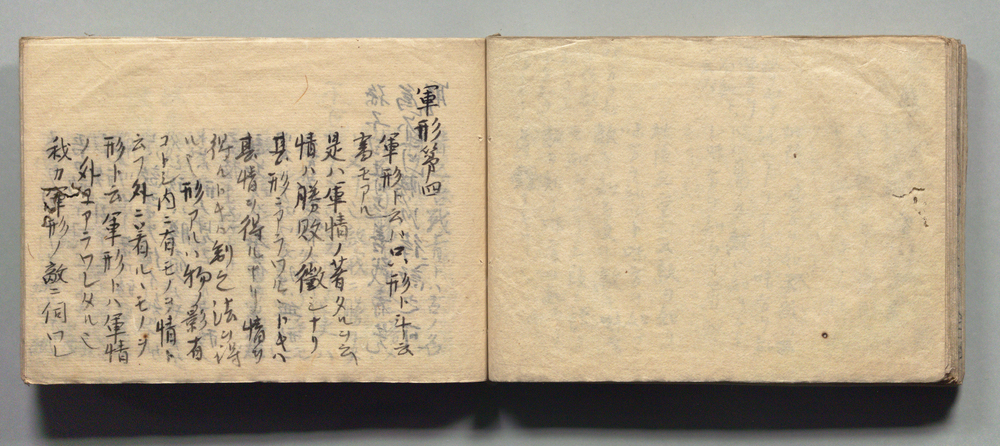 軍形第四
軍形ト云ハ只形ト斗云
書モアル
是ハ軍情ノ著タルヲ云
情ハ勝敗ノ徴シナリ
其形ニアラワルヽトキハ
其情ヲ得ルナリ情ヲ
得ルトキハ制之法ヲ得
ル 形アルハ物ノ影有
コトシ内ニ有モノヲ情ト
云フ外ニ著ルヽモノヲ
形ト云軍形トハ軍情
ノ外ヱアラワレタル
我カ軍形ノ敵ニ伺ワレ